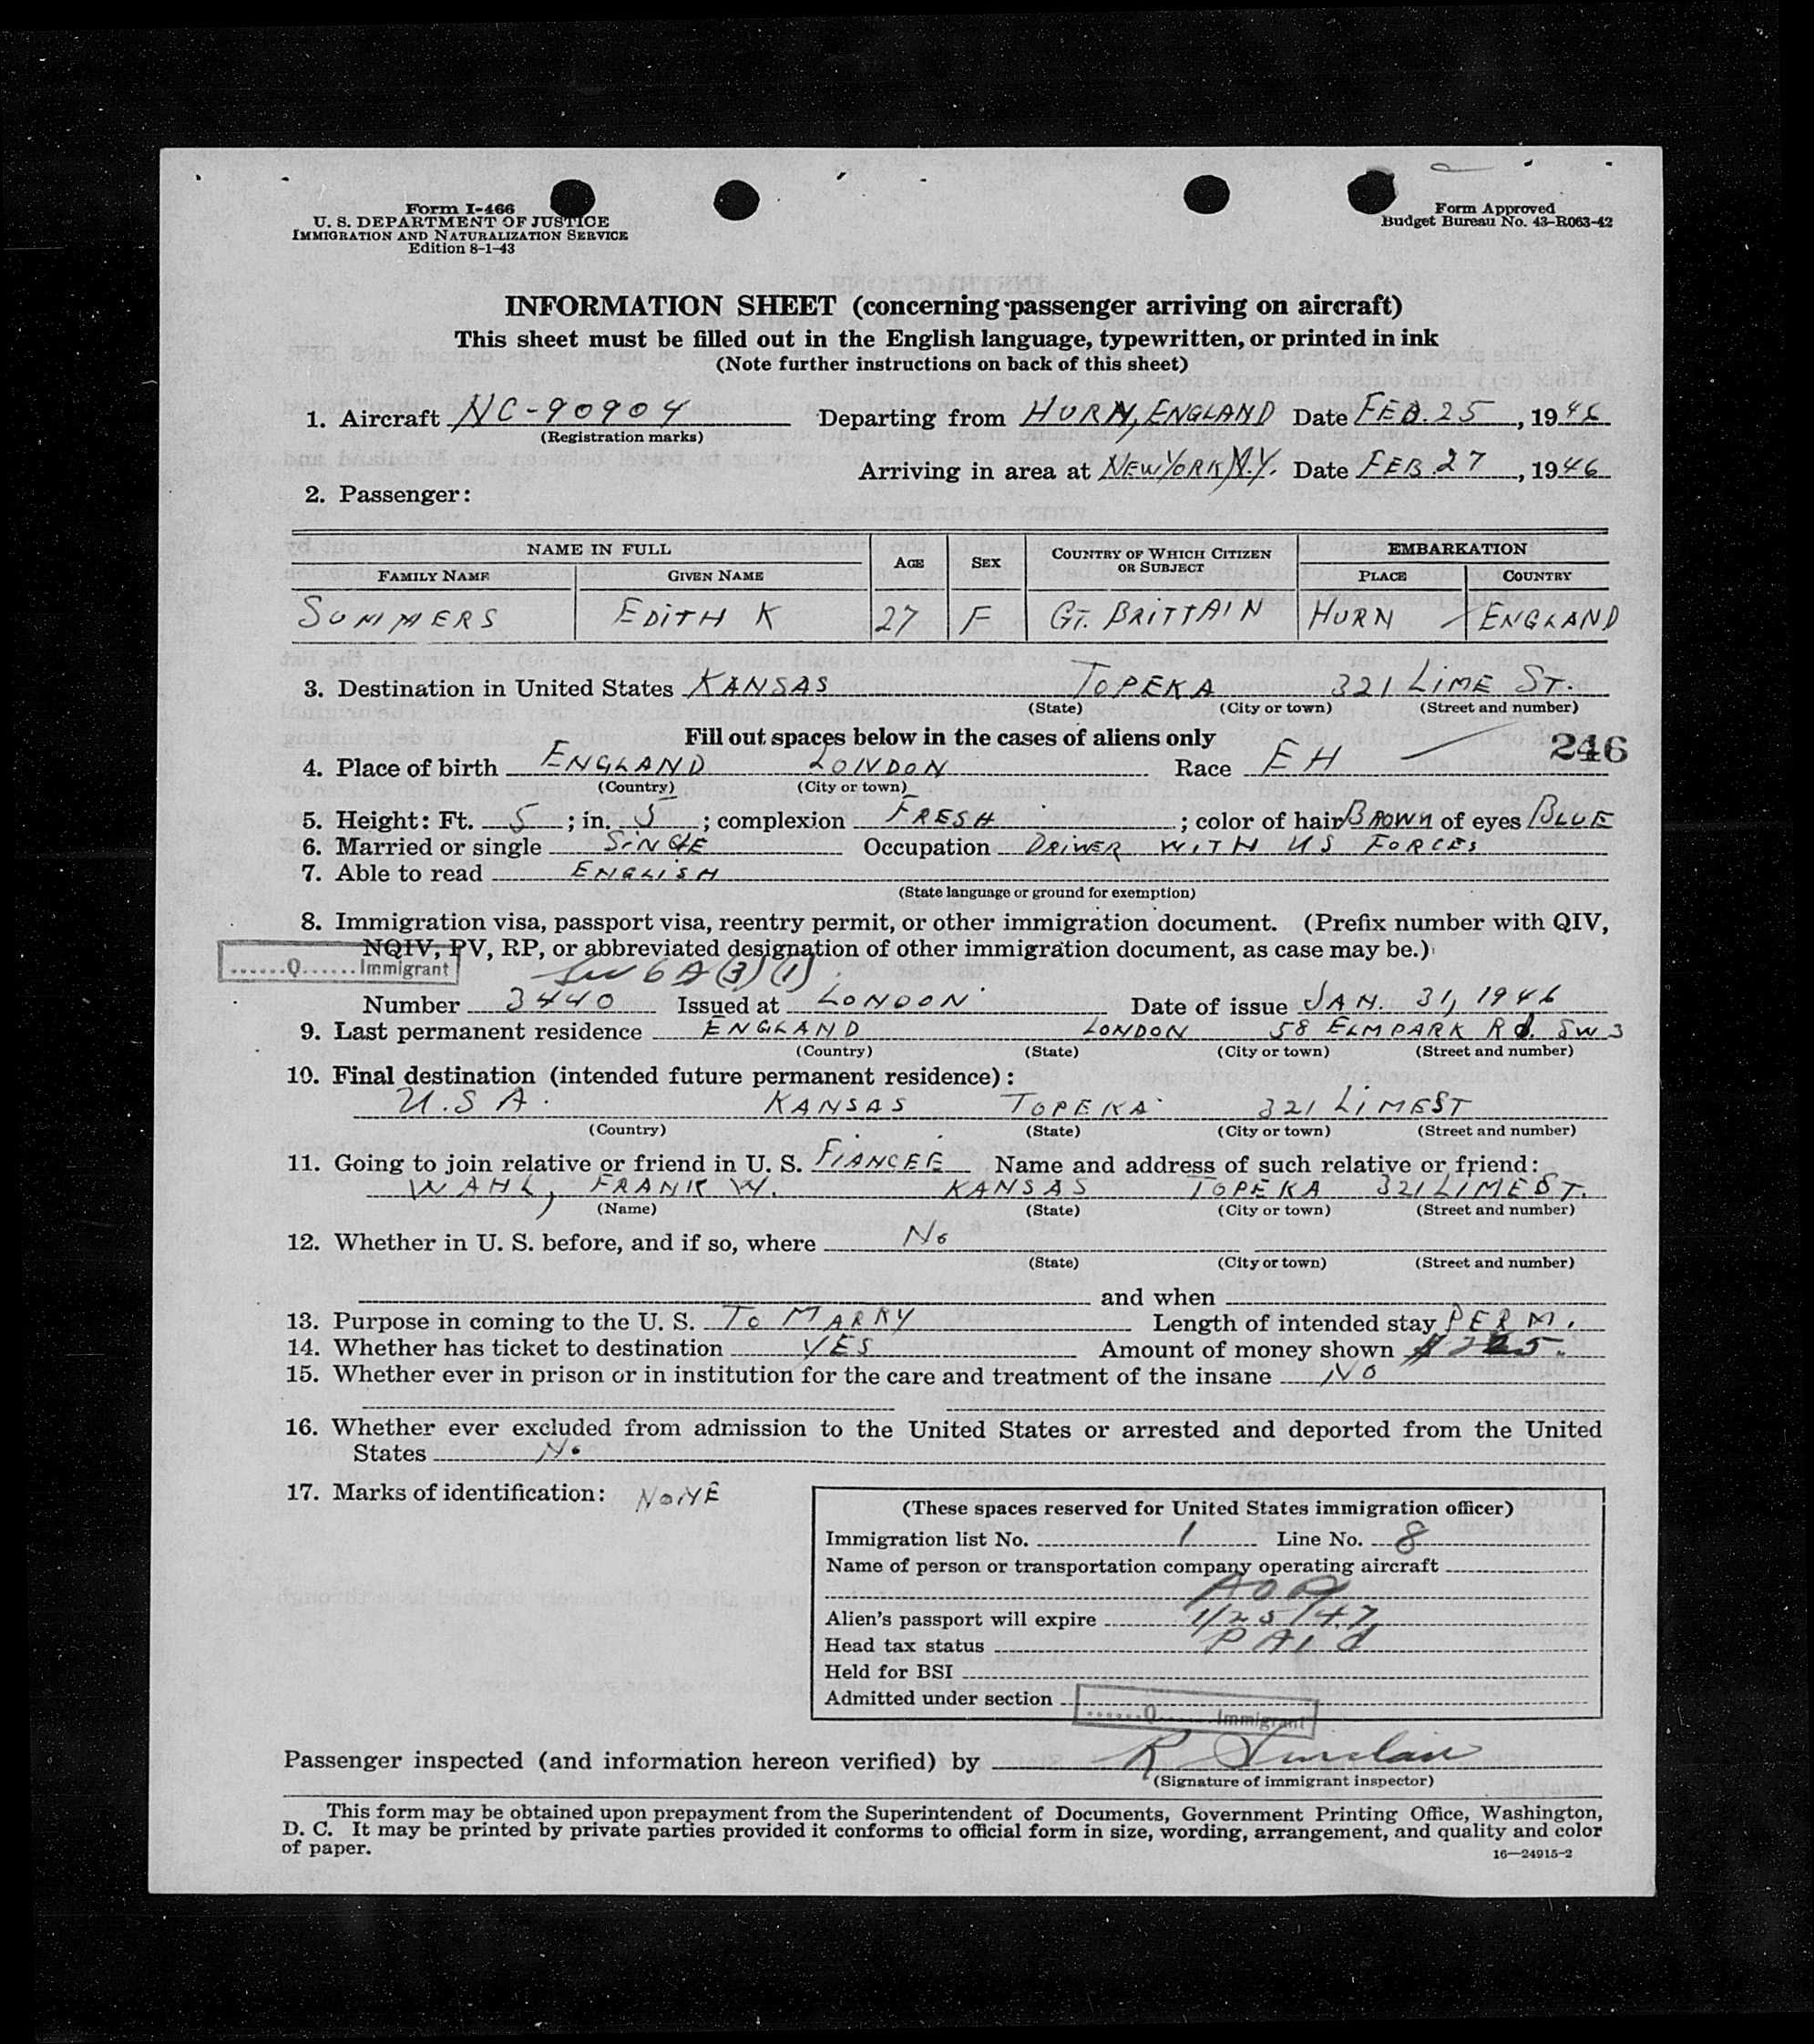 Form I-466
U. S. DEPARTMENT OF JUSTICE
IMMIGRATION AND NATURALIZATION SERVICE
Edition 8-1-43
Form Approved
Budget Bureau No. 43-R063-42
INFORMATION SHEET (concerning passenger arriving on aircraft)
This sheet must be filled out in the English language, typewritten, or printed in ink
(Note further instructions on back of this sheet)
1. Aircraft NC-90904 Departing from HURN, ENGLAND Date FEB. 25, 1946
(Registration marks)
Arriving in area at NEW YORK, N.Y. Date FEB. 27, 1946
2. Passenger:
NAME IN FULL AGE SEX COUNTRY OF WHICH CITIZEN OR SUBJECT EMBARKATION
FAMILY NAME GIVEN NAME PLACE COUNTRY
SUMMERS EDITH K 27 F GT. BRITTAIN HURN ENGLAND
3. Destination in United States KANSAS TOPEKA 321 LIME ST.
(State) (City or town) (Street and number)
Fill out spaces below in the cases of aliens only
246
4. Place of birth ENGLAND LONDON Race EH
(Country) (City or town)
5. Height: Ft. 5; in. 5; complexion FRESH; color of hair BROWN of eyes BLUE
6. Married or single SINGLE Occupation DRIVER WITH US FORCES
7. Able to read ENGLISH
(State language or ground for exemption)
8. Immigration visa, passport visa, reentry permit, or other immigration document. (Prefix number with QIV,
NQIV, PV, RP, or abbreviated designation of other immigration document, as case may be.)
......Q......Immigrant
6 A (3) (1)
Number 3440 Issued at LONDON Date of issue JAN. 31, 1946
9. Last permanent residence ENGLAND LONDON 58 ELMPARK Rd. SW3
(Country) (State) (City or town) (Street and number)
10. Final destination (intended future permanent residence):
U.S A. KANSAS TOPEKA 321 LIME ST
(Country) (State) (City or town) (Street and number)
11. Going to join relative or friend in U. S. FIANCEE Name and address of such relative or friend:
WAHL, FRANK W. KANSAS TOPEKA 321 LIME ST.
(Name) (State) (City or town) (Street and number)
12. Whether in U. S. before, and if so, where No
(State) (City or town) (Street and number)
and when
13. Purpose in coming to the U. S. TO MARRY Length of intended stay PERM.
14. Whether has ticket to destination YES Amount of money shown
15. Whether ever in prison or in institution for the care and treatment of the insane NO
16. Whether ever excluded from admission to the United States or arrested and deported from the United
States No
17. Marks of identification: NONE
(These spaces reserved for United States immigration officer)
Immigration list No. 1 Line No. 8
Name of person or transportation company operating aircraft
AOA
Alien's passport will expire 1/25/47
Head tax status PAId
Held for BSI
Admitted under section
......Q......Immigrant
Passenger inspected (and information hereon verified) by R Sinclair
(Signature of immigrant inspector)
This form may be obtained upon prepayment from the Superintendent of Documents, Government Printing Office, Washington,
D. C. It may be printed by private parties provided it conforms to official form in size, wording, arrangement, and quality and color
of paper.
16—24915-2